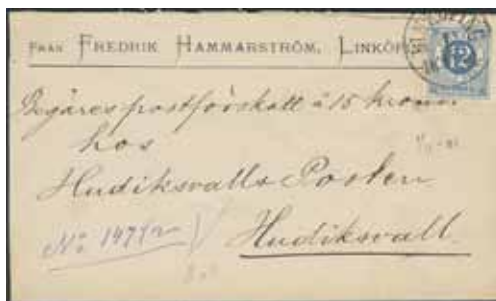 FRÅN FREDRIK HAMMARSTRÖM, LINKÖP
12
Begäres postförskott å 15 kronor
hos
Hudiksvalls Posten
Hudiksvall.